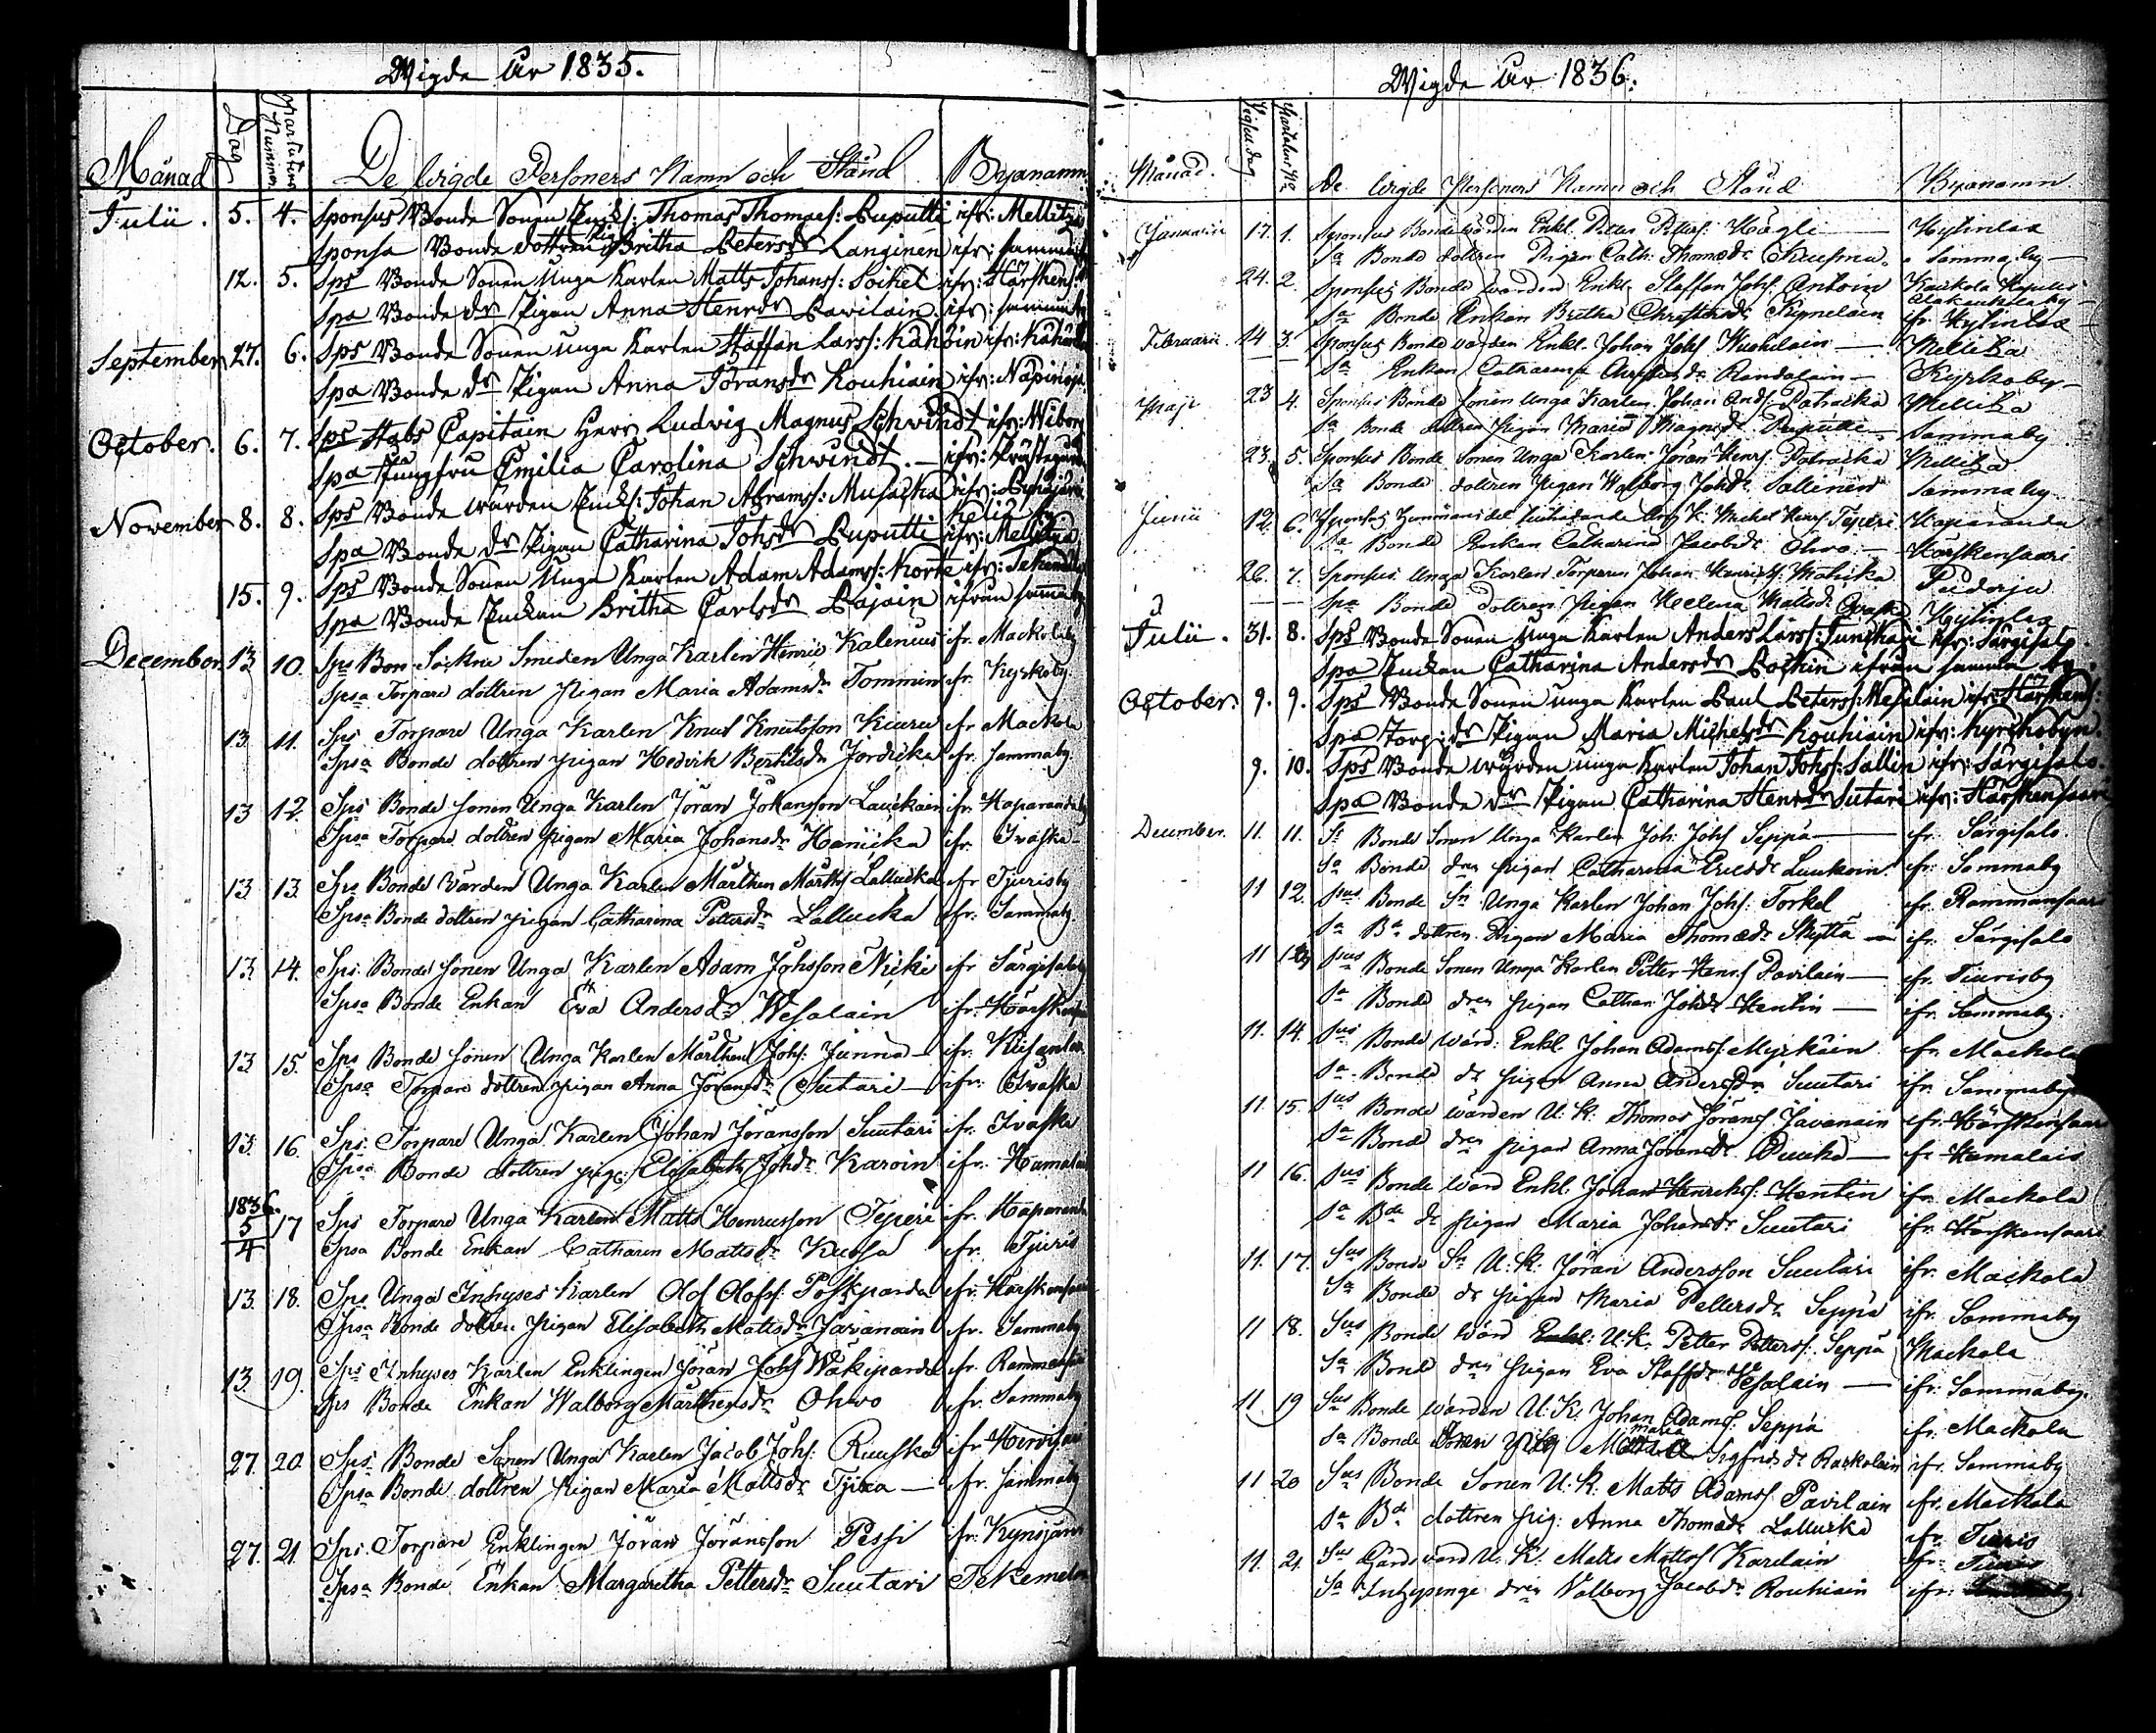 Wigde år 1835.
Månad Dag Parlutens Nummer De wigde Personers Namn och Stånd Byanamn
Julii. 5. 4. Sponsus Bonde Sonen Enkl: Thomas Thomass: Puputti ifr: Mellitzä
Sponsa Bonde dottren Pig: Britha Petersdr Langinen ifr: samma
12. 5. Sps Bonde Sonen Unga Karlen Matts Johanss: Soikel ifr: Härsken:
Spa Bonde dr Pigan Anna Henrdr Pavilain ifr: samma
September 27. 6. Sps Bonde Sonen unga Karlen Staffan Larss: Kähöin ifr:
Spa Bonde dr Pigan Anna Jöransdr Rouhiain ifr:
October. 6. 7. Sps Stabs Capitain Herr Ludvig Magnus Schwindt ifr: Wiborg
Spa Jungfru Emilia Carolina Schwindt. ifr:
November 8. 8. Sps Bonde wärden Enkl: Johan Abramss: Musacka ifr:
Spa Bonde dr Pigan Catharina Johsdr Puputti ifr: Mellitzä
15. 9. Sps Bonde Sonen Unga Karlen Adam Adamss: Korte ifr:
Spa Bonde Enckan Britha Carlsdr Pajain ifrån samma by
December 13 10. Sps Bon: Sockne Smeden Unga Karlen Henric Kalenius ifr. Mackolaby
Spsa Torpare dottren pigan Maria Adamsdr Tommin ifr. Kyrkoby
13. 11. Sps Torpare Unga Karlen Knut Knutsson Kiuru ifr Mackola
Spsa Bonde dottren pigan Hedvik Bertilsdr Jordicka ifr. Sammaby
13 12. Sps Bonde Sonen Unga Karlen Jöran Johansson Lauckain ifr. Haparandaby
Spsa Torpare dottren pigan Maria Johansdr Hanicka ifr. Ivaska
13 13. Sps Bonde Värden Unga Karlen Marthen Marths Lallucka ifr Tjurisby
Spsa Bonde dottren pigan Catharina Pettersdr Lallucka ifr. Sammaby
13 14. Sps. Bonde Sonen Unga Karlen Adam Johsson Nicki ifr Särgisaloby
Spsa Bonde Enkan Eva Andersdr Wesalain ifr. Härskensaari
13 15. Sps Bonde Sonen Unga Karlen Marthen Johs: Junna ifr.
Spsa Torpare dottren pigan Anna Jöransdr Suutari ifr: Ivaska
13. 16. Sps. Torpare Unga Karlen Johan Jöransson Suutari ifr. Ivaska
Spsa Bonde dottren pig: Elisabeth Johdr Karoin ifr.
1836.
5/4 17 Sps Torpare Unga Karlen Matts Henricsson Teperi ifr. Haparanda
Spsa Bonde Enkan Catharin Mattsdr Kuosa ifr. Tjuris
13. 18. Sps Unga Inhyses Karlen Olof Olofss: Posskiparda ifr. Härskensaari
Spsa Bonde dottren Pigan Elisabeth Mattsdr Javanain ifr. Sammaby
13. 19. Sps Inhyses Karlen Enklingen Jöran Johs Wäkiparda ifr. Rammansaari
Sps Bonde Enkan Walborg Marthensdr Ohvo ifr. Sammaby
27. 20. Sps Bonde Sonen Unga Karlen Jacob Johs: Ruuska ifr Hirvisaari
Spsa Bonde dottren Pigan Maria Mattsdr Tjika ifr. Sammaby
27. 21. Sps. Torpare Enklingen Jöran Jöransson Pessi ifr. Kynsjärvi
Spsa Bonde Enkan Margaretha Pettersdr Suutari
Wigde år 1836.
Månad. De wigde Personers Namn och Stånd Byanamn
Januarii 17. 1. Sponsus Bonde wärden Enkl. Petter Petters. Hägli Kylinlax
Sa Bonde dottren Pigan Cath: Thomasdr Samma by
24. 2. Sponsus Bonde wärden Enkl. Staffan Johs. Antoin
Sa Bonde Enkan Britha ifr. Kylinlax
Februarii. 14 3. Sponsus Bonde wärden Enkl. Johan Johs Mellitzä
Sa Enkan Kyrkoby
Maji 23 4. Sponsus Bonde Sonen Unga Karlen Johan Ands: Patracka Mellitzä
Sa Bonde dottren pigan Maria Magnsdr Puputti Sammaby
23. 5. Sponsus Bonde Sonen Unga Karlen Jöran Henrs: Patracka Mellitzä
Sa Bonde dottren pigan Walborg Johdr Pällinen Sammaby
Junii 12. 6. Sponsus Michel Henrs: Teperi Haparanda
Sa Bonde Enkan Catharina Jacobsdr Ohvo Härskensaari
26. 7. Sponsus Unga Karlen Torparen Johan Henrics
Spa Bonde Dottren Pigan Helena Mattsdr Kylinlax
Julii. 31. 8. Sps Bonde Sonen Unga Karlen Anders Larss: Junikari ifr: Särgisalo
Spa Enckan Catharina Andersdr Pockin ifrån samma by.
October. 9. 9. Sps Bonde Sonen unga Karlen Paul Peterss: Wesalain ifr: Härskens:
Spa Torp: dr Pigan Maria Michelsdr Rouhiain ifr: Kyrckobyn.
9. 10. Sps Bonde wärden unga Karlen Johan Johs: Sallin ifr: Särgisalo.
Spa Bonde dr Pigan Catharina Henrdr Sutari ifr: Härskensaari
December. 11. 11. Ss Bonde Sonen Unga Karlen Joh: Johs Seppä ifr. Särgisalo.
Sa Bonde dren pigan Catharina Ericsdr Luukoin. ifr. Sammaby
11 12. Sus Bonde Sn Unga Karlen Johan Johs: Torkel ifr. Rammansaari
Sa Bde dottren Pigan Maria Thomasdr Skyttä ifr. Särgisalo
11 13 Sus Bonde Sonen Unga Karlen Petter Henrs Pavilain ifr. Tiurisby
Sa Bonde dren pigan Cathar: Johdr Hentin ifr. Sammaby.
11. 14. Sus Bonde Wärd: Enkl. Johan Adams: Myrkäin ifr. Mackola
Sa Bonde dr pigan Anna Andersdr Suutari ifr. Sammaby
11. 15. Sus Bonde wärden U: K: Thomas Jörans: Javanain ifr. Härskensaari
Sa Bonde dren pigan Anna Jöransdr Puuka ifr Hamalais
11 16. Sus Bonde wärd Enkl. Johan Henriks: Hentin ifr. Mackola
Sa Bde dr pigan Maria Johansdr Suutari ifr. Härskensaari
11. 17. Sus Bonde Sn U: K: Jöran Andersson Suutari ifr. Mackola
Sa Bonde dr pigan Maria Pettersdr Seppä ifr. Sammaby
11 18. Sus Bonde Wärd Enkl: U: K. Petter Petters: Seppä Mackola
Sa Bonde dren pigan Eva Staffdr Wesalain ifr. Sammaby.
11. 19 Sus Bonde wärden U: K. Johan Adams: Seppä ifr. Mackola
Sa Bonde dottren pig Maria Sigfridsdr Raskolain ifr. Sammaby
11 20 Sus Bonde Sonen U: K. Matts Adams: Pavilain ifr. Mackola
Sa Bde dottren pig: Anna Thomasdr Lallucka ifr. Tiuris
11. 21. Sus Gårds wärd U: K: Matts Matts Karilain ifr. Tiuris
Sa Inhysinge dren Valborg Jacobsdr Rouhiain ifr.